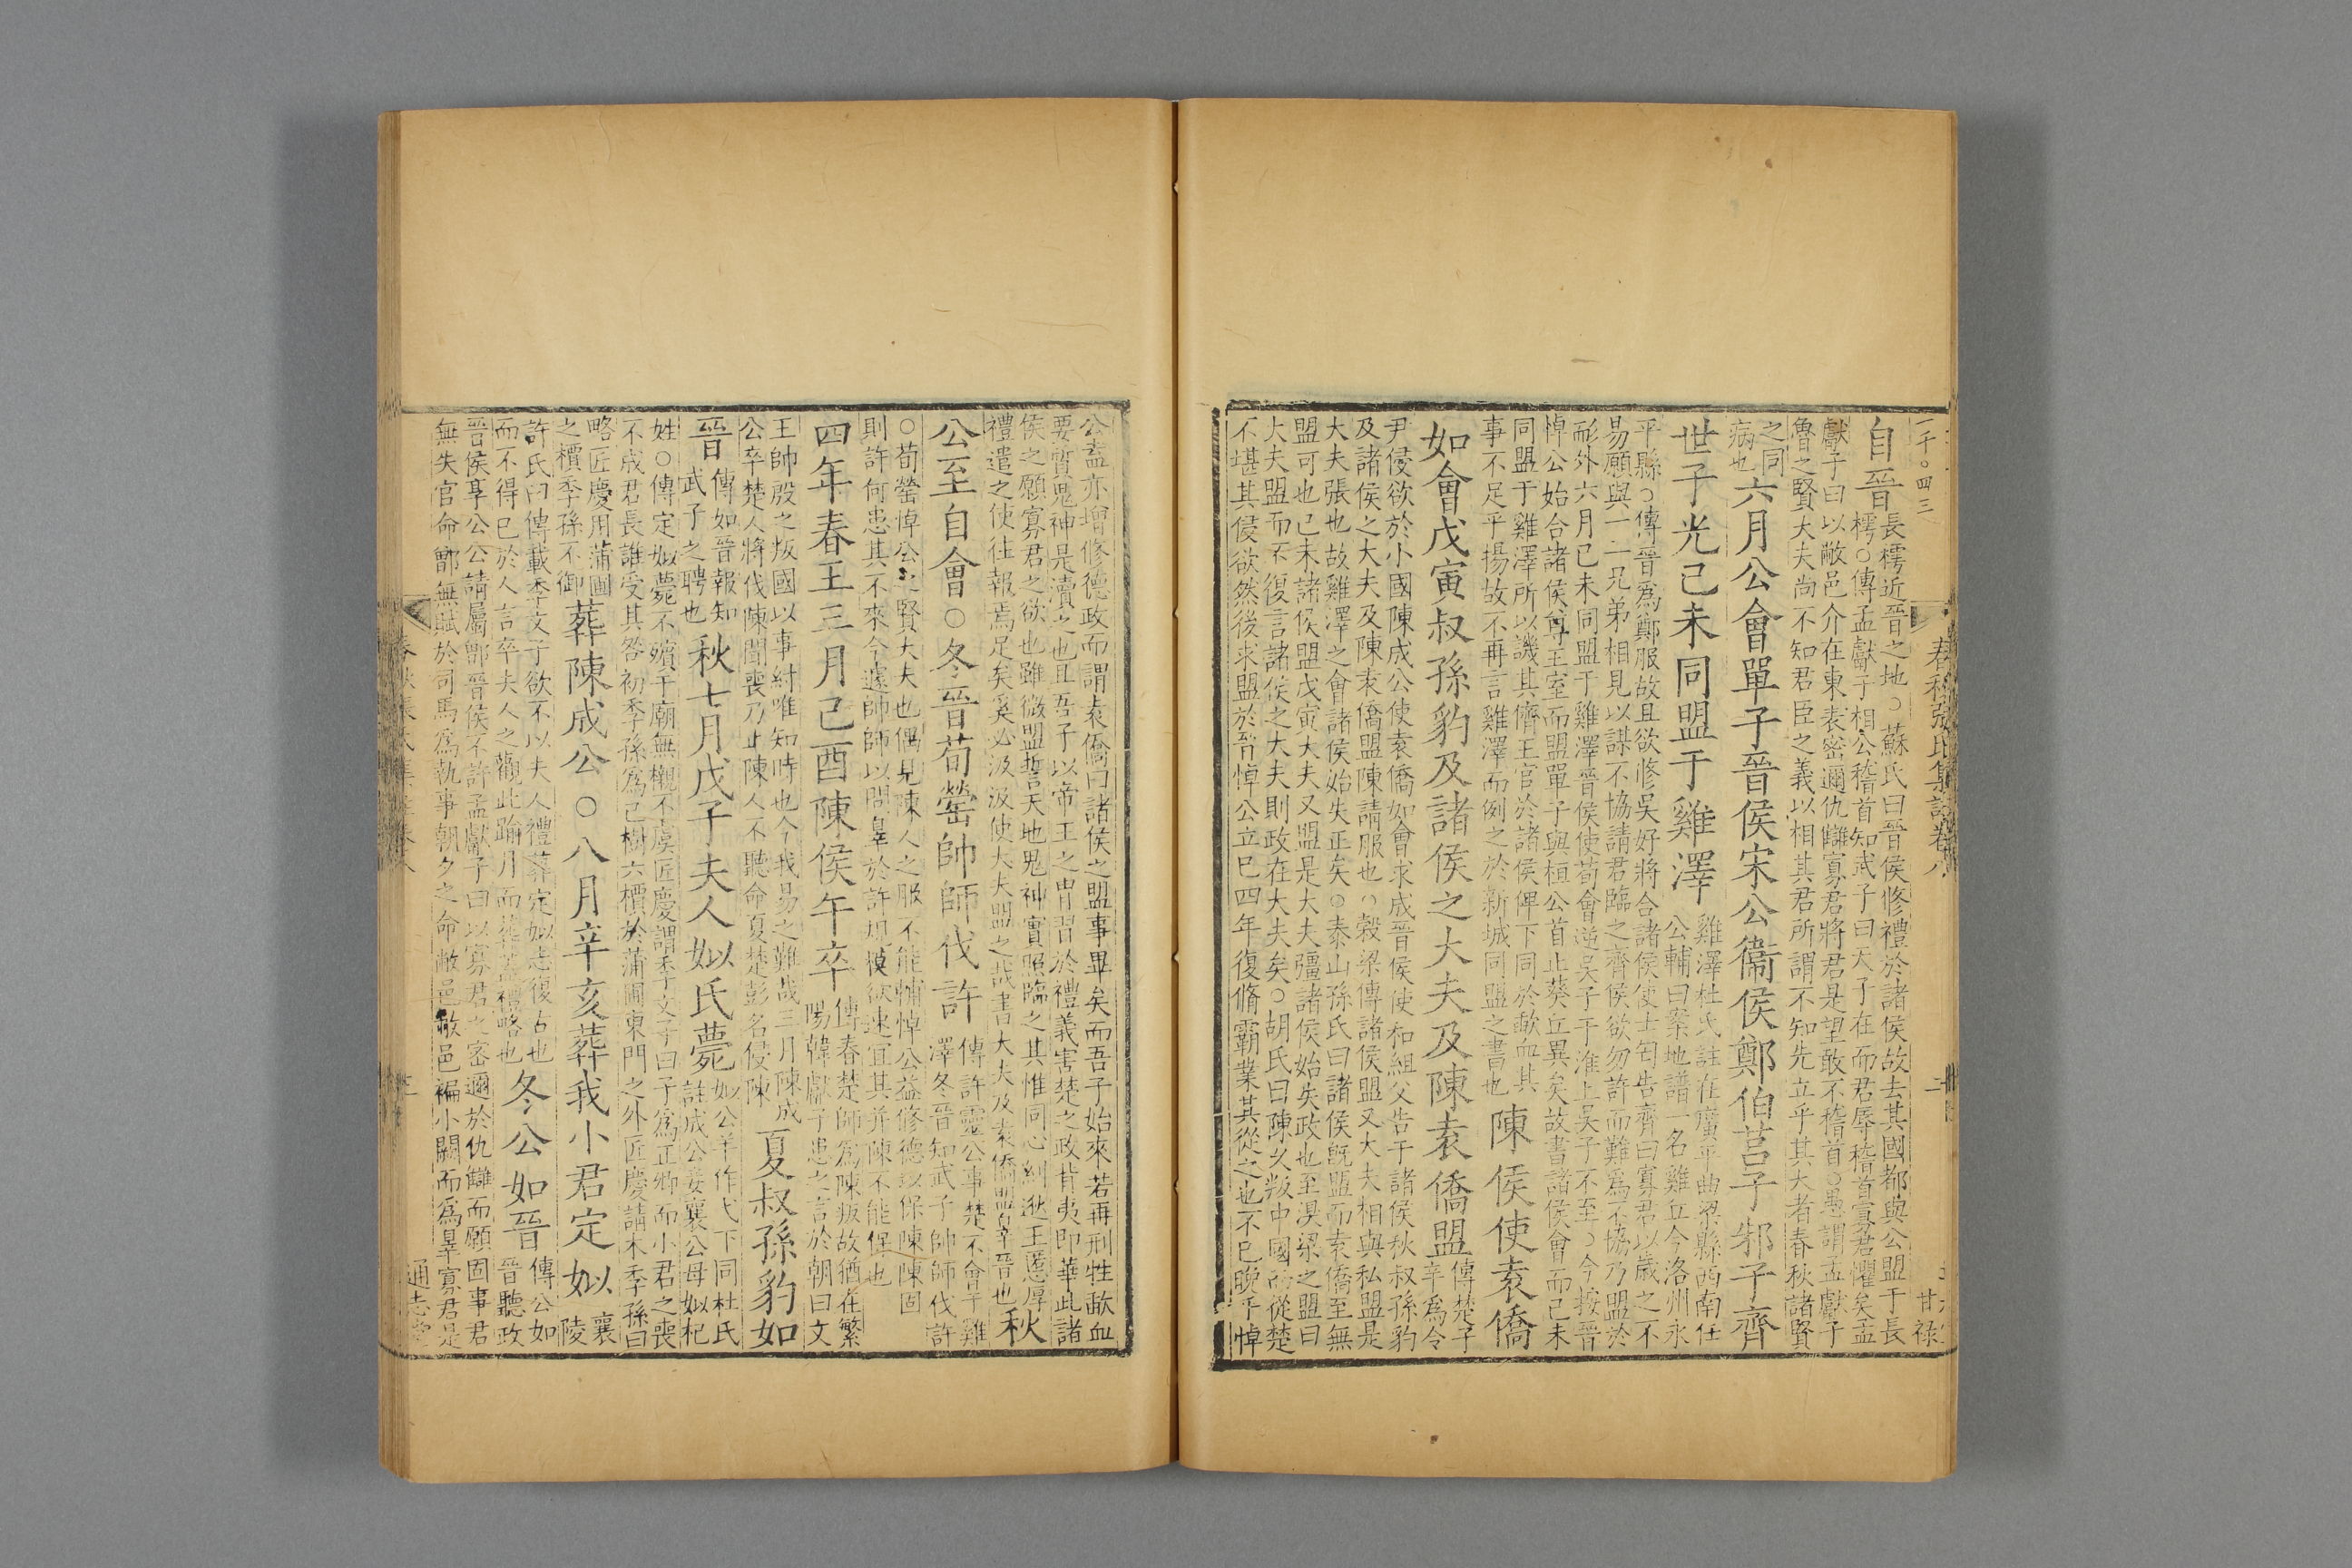 一千〇四三
春秋張氏集註卷八
二
甘祿
自晉
長樗近晉之地〇蘇氏曰晉侯修禮於諸侯故去其國都與公盟于長
樗〇傳孟獻子相公稽首知武子曰天子在而君辱稽首寡君懼矣孟
獻子曰以敝邑介在東表密邇仇讎寡君將君是望敢不稽首〇愚謂孟獻子
魯之賢大夫尚不知君臣之義以相其君所謂不知先立乎其大者春秋諸賢
之同
病也
六月公會單子晉侯宋公衞侯鄭伯莒子邾子齊
世子光己未同盟于雞澤
雞澤杜氏註在廣平曲梁縣西南任
公輔曰案地譜一名雞丘今洛州永
平縣〇傳晉爲鄭服故且欲修吳好將合諸侯使士匄告齊曰寡君以歲之不
易願與一二兄弟相見以謀不協請君臨之齊侯欲勿許而難爲不協乃盟於
耏外六月己未同盟于雞澤晉侯使荀會逆吳子于淮上吳子不至〇今按晉
悼公始合諸侯尊王室而盟單子與桓公首止葵丘異矣故書諸侯會而己未
同盟于雞澤所以譏其儕王官於諸侯俾下同於歃血其
事不足乎揚故不再言雞澤而例之於新城同盟之書也
陳侯使袁僑
如會戊寅叔孫豹及諸侯之大夫及陳袁僑盟
傳楚子
辛爲令
尹侵欲於小國陳成公使袁僑如會求成晉侯使和組父告于諸侯秋叔孫豹
及諸侯之大夫及陳袁僑盟陳請服也〇穀梁傳諸侯盟又大夫相與私盟是
大夫張也故雞澤之會諸侯始失正矣〇泰山孫氏曰諸侯旣盟而袁僑至無
盟可也己未諸侯盟戊寅大夫又盟是大夫彊諸侯始失政也至溴梁之盟曰
大夫盟而不復言諸侯之大夫則政在大夫矣〇胡氏曰陳久叛中國而從楚
不堪其侵欲然後求盟於晉悼公立已四年復脩霸業其從之也不已晚乎悼
公盍亦增修德政而謂袁僑曰諸侯之盟事畢矣而吾子始來若再刑牲歃血
要質鬼神是瀆之也且吾子以帝王之冑習於禮義害楚之政背夷即華此諸
侯之願寡君之欲也雖微盟誓天地鬼神實照臨之其惟同心糾逖王慝厚
禮遣之使往報焉足矣奚必汲汲使大夫盟之哉書大夫及袁僑盟皋晉也
秋
公至自會〇冬晉荀罃帥師伐許
傳許靈公事楚不會于雞
澤冬晉知武子帥師伐許
〇荀罃悼公之賢大夫也偶見陳人之服不能輔悼公益修德以保陳陳固
則許何患其不來今遽帥師以問辠於許規模欲速宜其并陳不能保也
四年春王三月己酉陳侯午卒
傳春楚師爲陳叛故猶在繁
陽韓獻子患之言於朝曰文
王帥殷之叛國以事紂唯知時也今我易之難哉三月陳成
公卒楚人將伐陳聞喪乃止陳人不聽命夏楚彭名侵陳
夏叔孫豹如
晉
傳如晉報知
武子之聘也
秋七月戊子夫人姒氏薨
姒公羊作弋下同杜氏
註成公妾襄公母姒杞
姓〇傳定姒薨不殯于廟無櫬不虞匠慶謂季文子曰子爲正卿而小君之喪
不成君長誰受其咎初季孫爲己樹六檟於蒲圃東門之外匠慶請木季孫曰
略匠慶用蒲圃
之檟季孫不御
葬陳成公〇八月辛亥葬我小君定姒
襄
陵
許氏曰傳載季文子欲不以夫人禮葬定姒志復古也
而不得已於人言卒夫人之觀此踰月而葬禮略也
冬公如晉
傳公如
晉聽政
晉侯享公公請屬鄫晉侯不許孟獻子曰以寡君之密邇於仇讎而願固事君
無失官命鄫無賦於司馬爲執事朝夕之命敝邑敝邑褊小闕而爲辠寡君是
通志堂